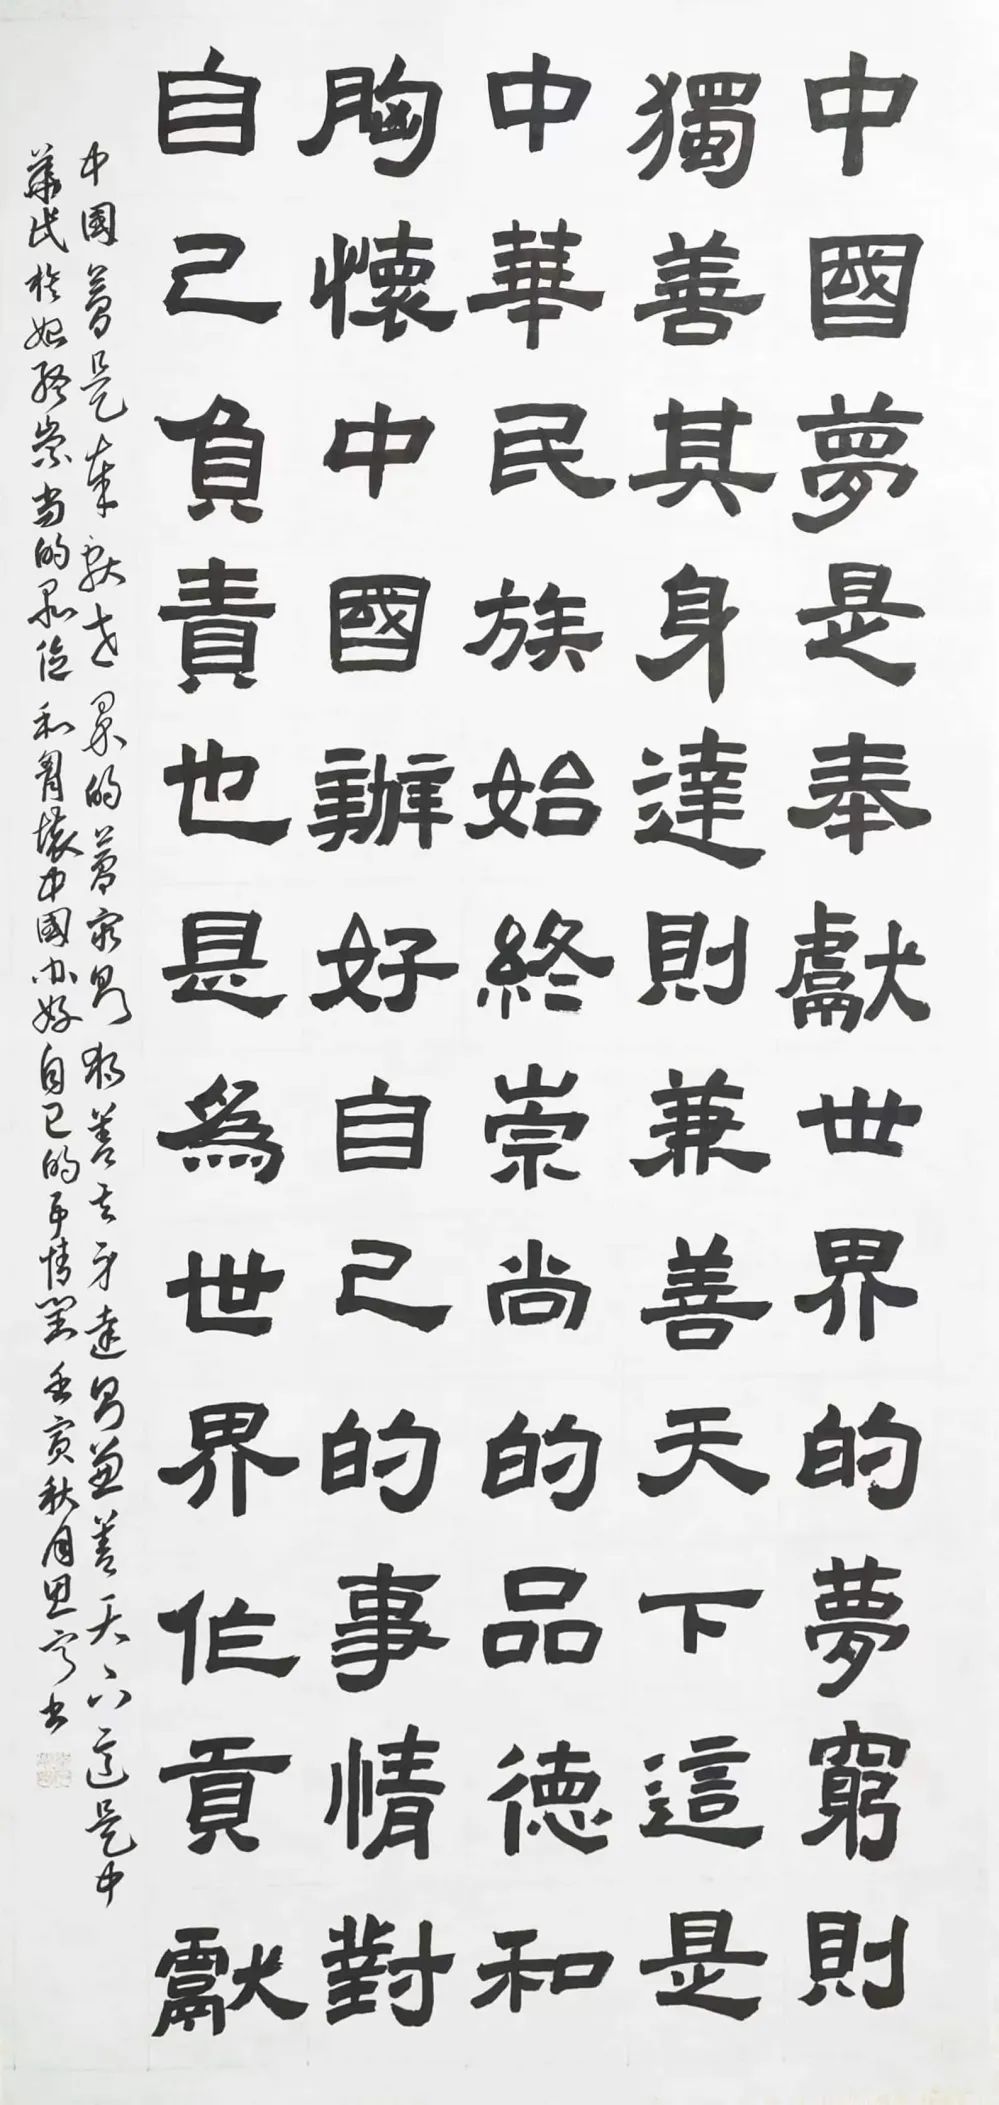 中國夢是奉獻世界的夢窮則
獨善其身達則兼善天下這是
中華民族始終崇尚的品德和
胸懷中國辦好自己的事情對
自己負責也是為世界作貢獻
中國夢是奉献世界的夢窮則独善其身達則兼善天下這是中
華民族始終崇尚的品德和胸懷中國办好自己的事情对壬寅秋月思宁书